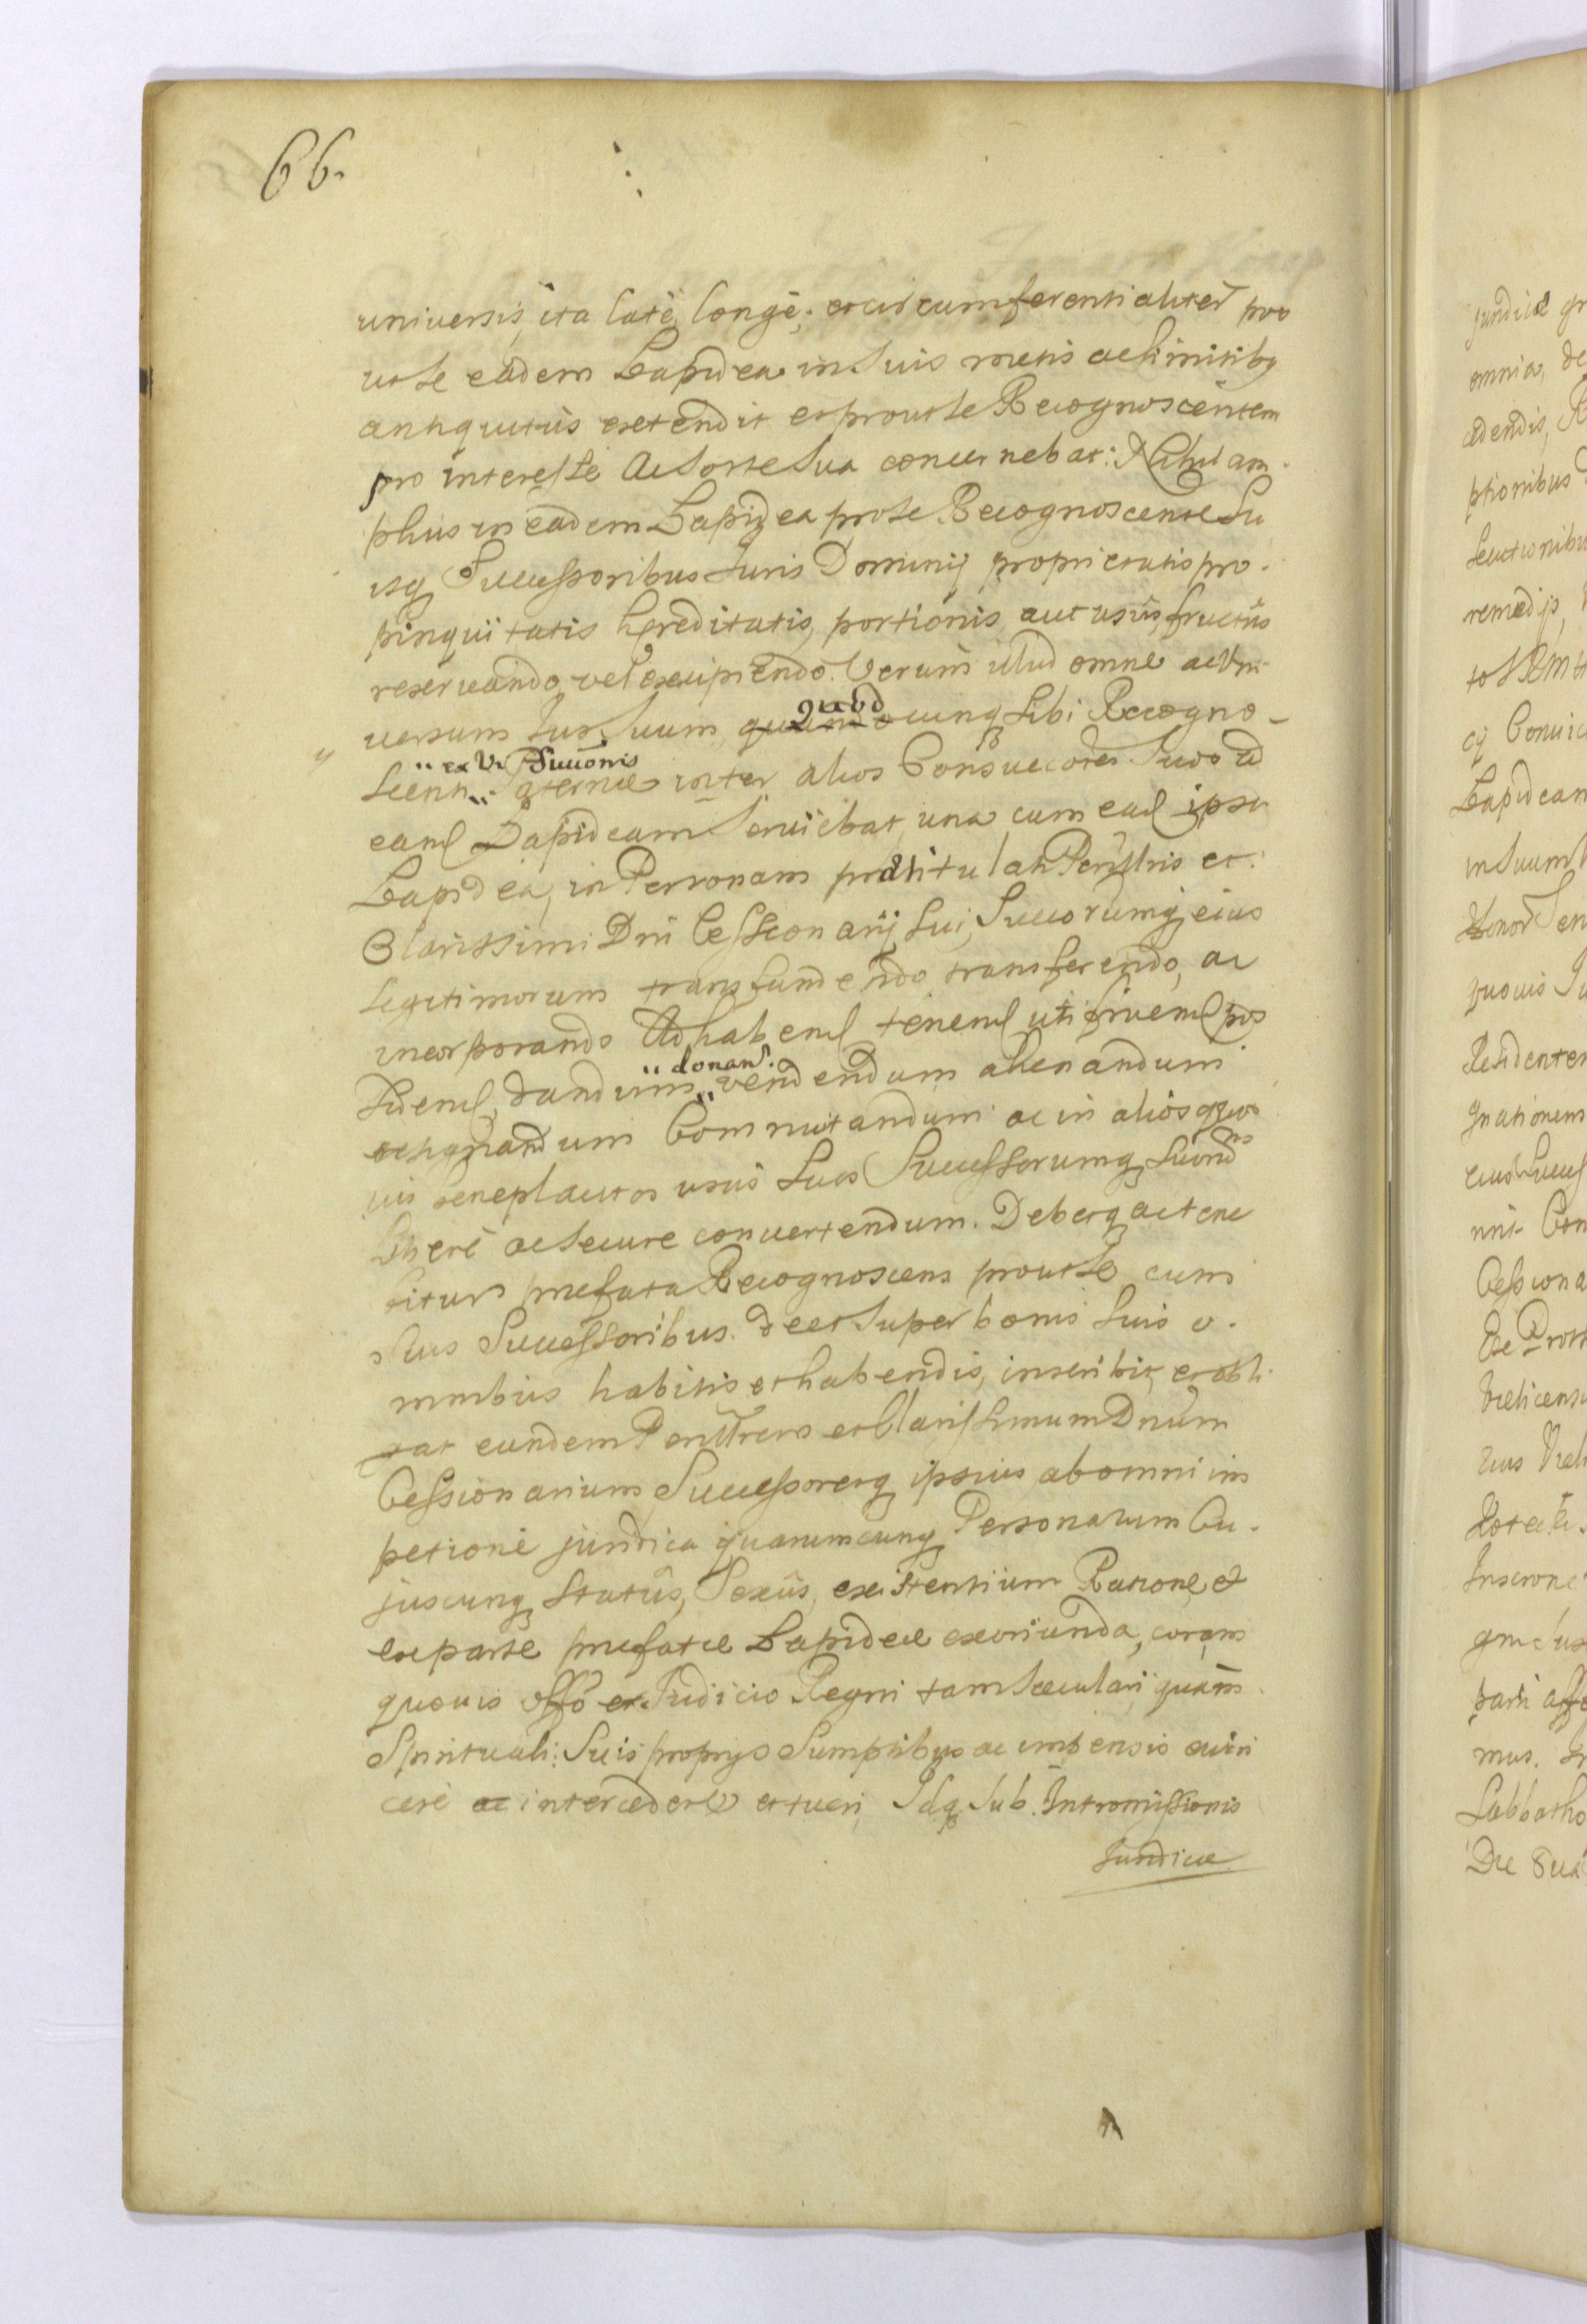 66.
universis, ita latè, longè, et circumferentialiter pro
ut se eadem Lapidea in suis metis ac limitibq
antiquitùs extendit et prout se Recognoscentem
pro interesse ac sorte sua concernebat: Nihil am-
plius in eadem Lapidea pro se Recognoscente su
isq Successoribus Juris Dominij proprietatis pro-
pinquitatis hereditatis, portionis, aut usûs fructûs
reservando vel excipiendo. Verum illud omne ac Vni-
versum Jus suum, quod quandocunq sibi Recogno-
scenti " ex Vi Succionis " paternæ inter alios Consuccores Suos ad
eand Lapideam serviebat, una cum ead ipsa
Lapidea, in Personam prætitulati Perillris et
Clarissimi Dni Cessionarij sui, Succorumq eius
legitimorum transfundendo, transferendo, ac
incorporando Ad habend tenend utifruend pos
sidend, dandum " donand. " vendendum alienandum
Commutandum ac in alios quos
vis beneplacitos usus suos Successorumq suor
liberè ac secure convertendum. Debetq ac tene
bitur præfata Recognoscens prout se cum
suis Successoribus de et super bonis suis o-
mnibus habitis et habendis, inscribit, et obli-
gat eundem Perillrem et Clarissimum Dnum
Cessionarium Successoresq ipsius ab omni im
petione juridica quarumcunq Personarum Cu-
juscunq statûs, Sexûs, existentium Ratione et
ex parte præfatæ Lapideæ exoriunda, coram
quovis offo et Judicio Regni tam sæculari quàm
Spirituali: Suis proprijs sumptibus ac impensis evin
cere ac intercedere et tueri, Idq sub Intromissionis
Juridicæ
juridicæ
omnia, de
cedendis,
ptionibus
remedijs,
Lapidean
in suum
quovis
Residenten
gnationem
Cessiona
mus.
Sabbatho